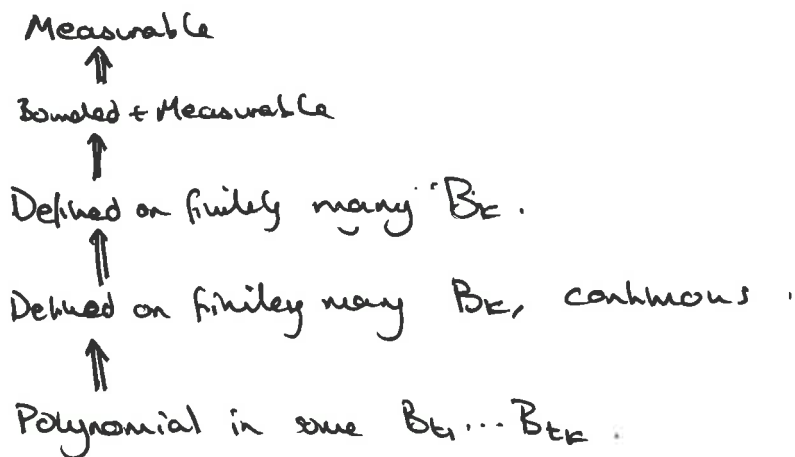 Measurable
⇑
Bounded + Measurable
⇑
Defined on finitely many Bₜ.
⇑
Defined on finitely many Bₜ, continuous.
⇑
Polynomial in some Bₜ₁ ... Bₜₖ.